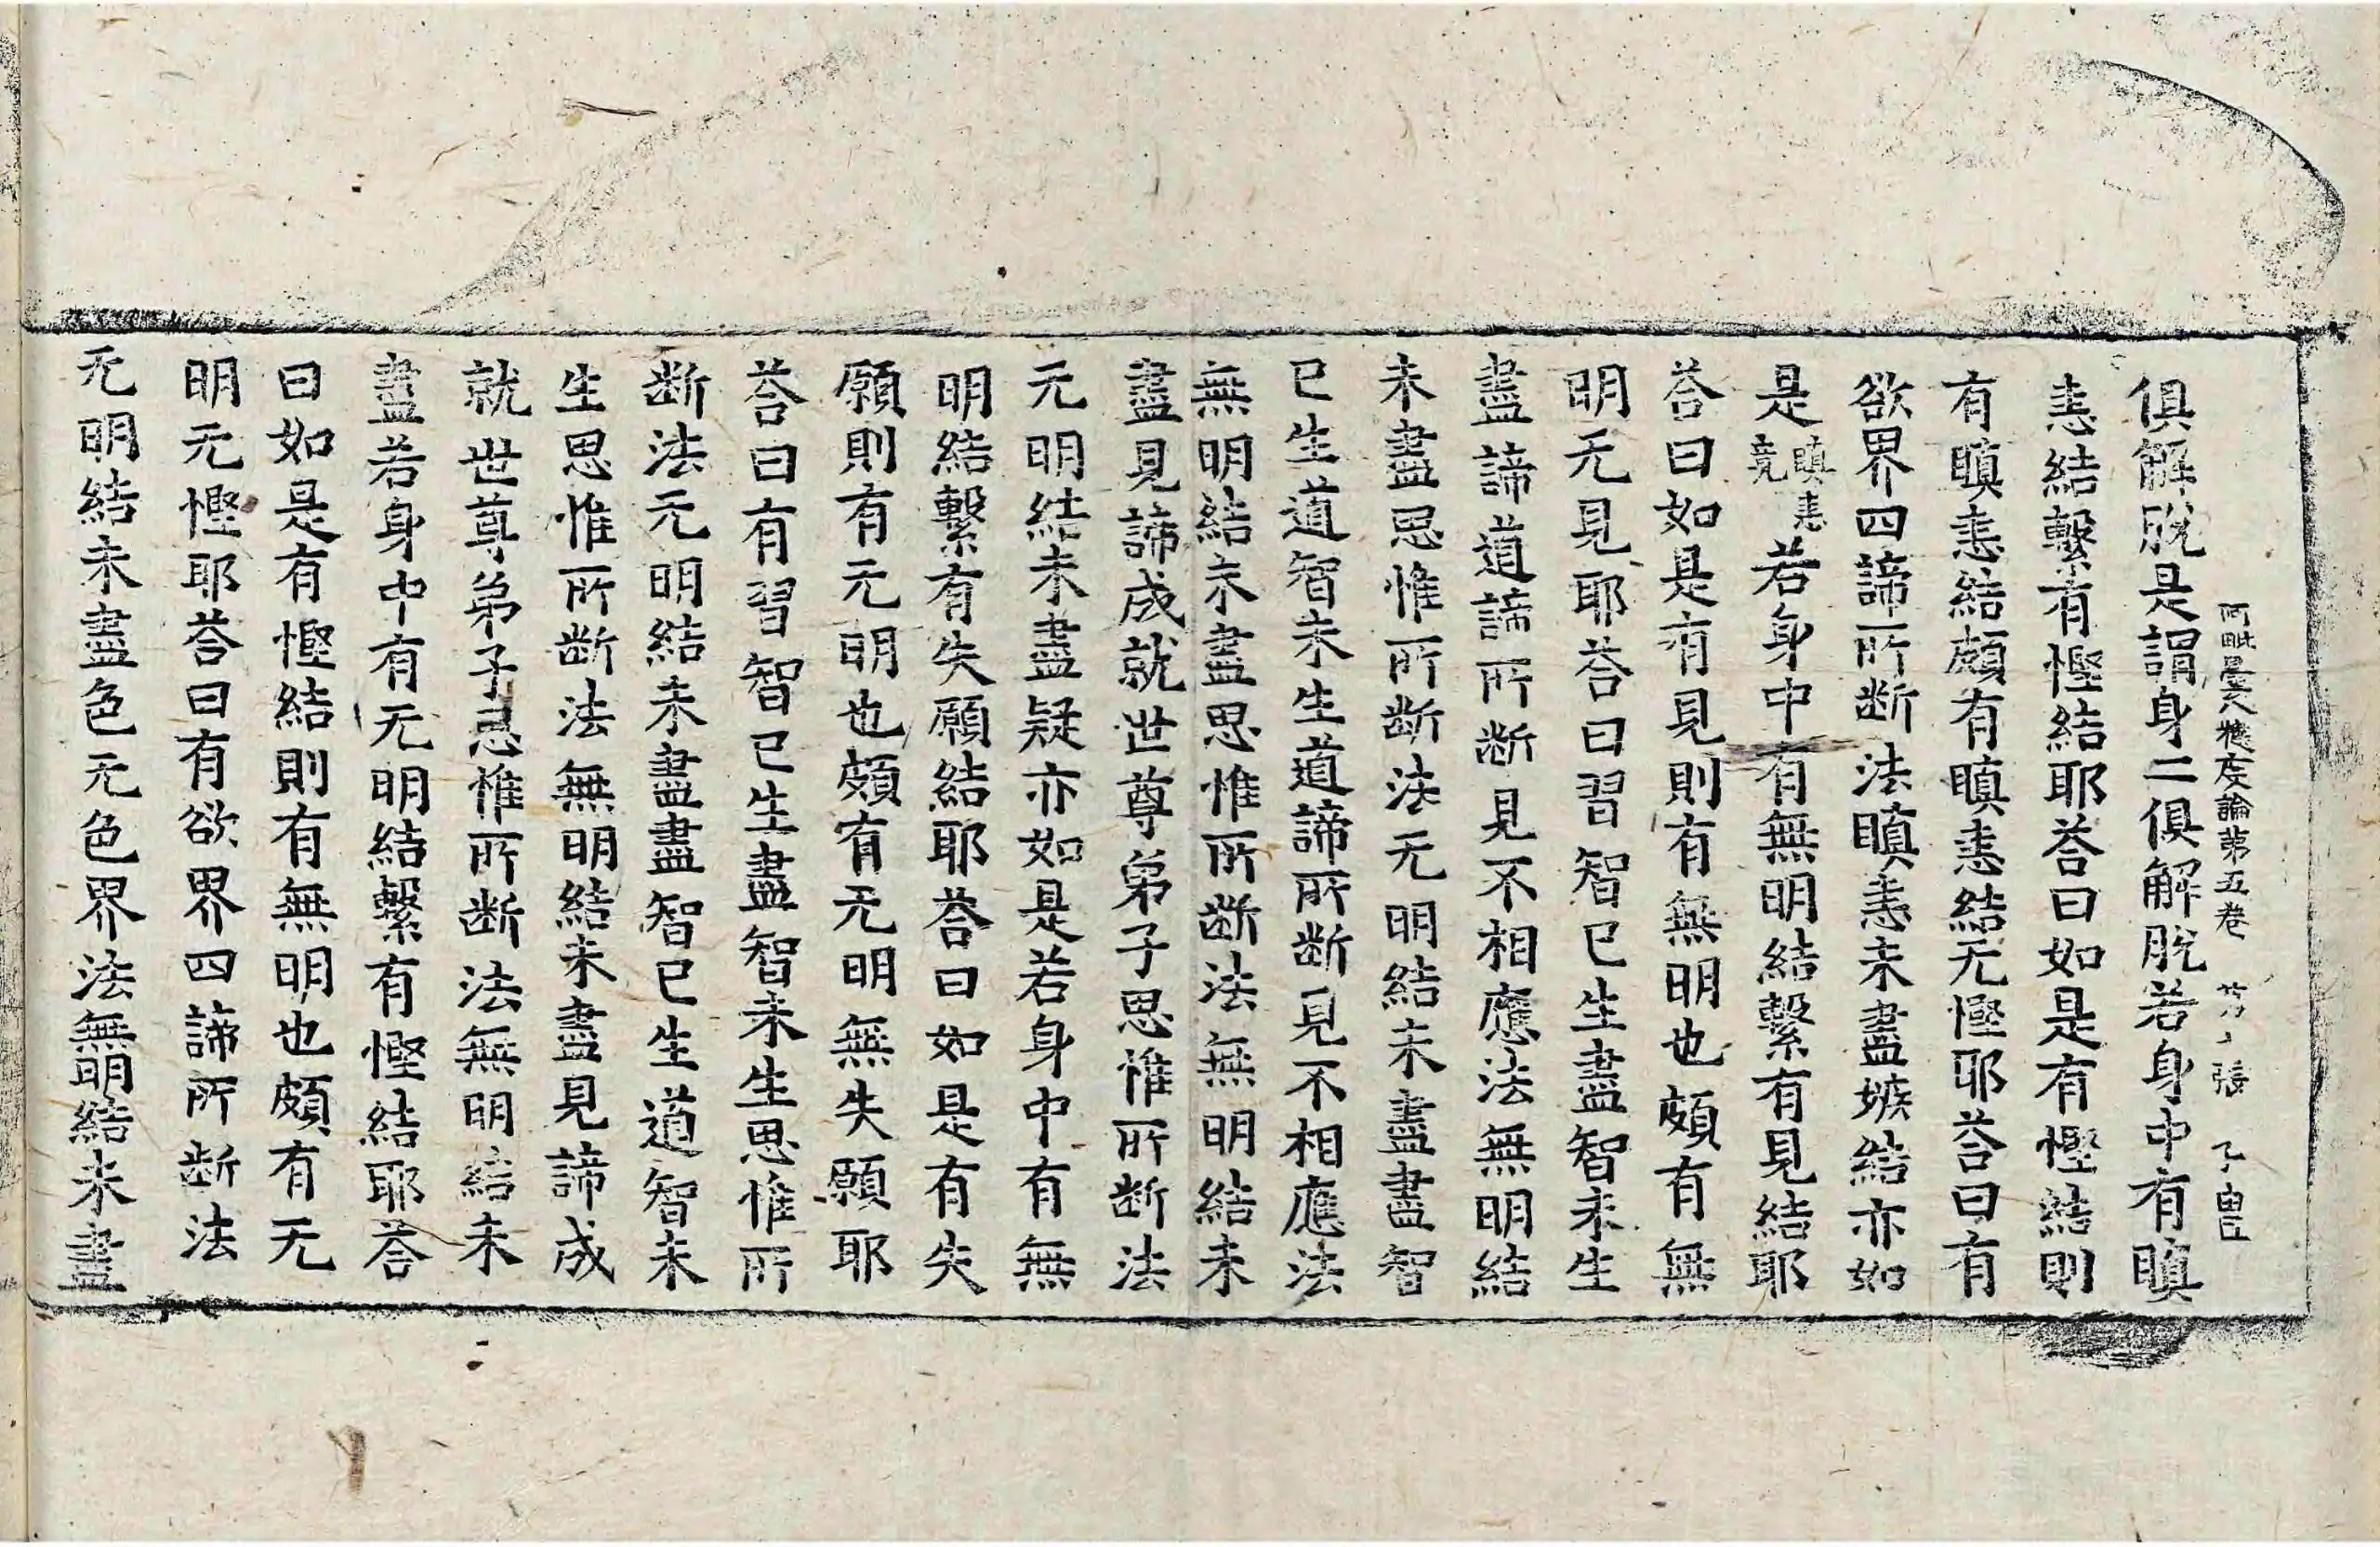 阿毗曇八揵度論第五卷 张 子 臣
俱解脫是謂身二俱解脫若身中有瞋
恚結繫有慳結耶荅曰如是有慳結則
有瞋恚結頗有瞋恚結无慳耶荅曰有
欲界四諦所断法瞋恚未盡嫉結亦如
是瞋恚竟若身中有無明結繫有見結耶
荅曰如是有見則有無明也頗有無
明无見耶荅曰習智已生盡智未生
盡諦道諦所断見不相應法無明結
未盡思惟所断法无明結未盡盡智
已生道智未生道諦所断見不相應法
無明結未盡思惟所断法無明結未
盡見諦成就世尊弟子思惟所断法
无明結未盡疑亦如是若身中有無
明結繫有失願結耶荅曰如是有失
願則有无明也頗有无明無失願耶
荅曰有習智已生盡智未生思惟所
断法无明結未盡盡智已生道智未
生思惟所断法無明結未盡見諦成
就世尊弟子思惟所断法無明結未
盡若身中有无明結繫有慳結耶荅
曰如是有慳結則有無明也頗有无
明无慳耶荅曰有欲界四諦所断法
无明結未盡色无色界法無明結未盡